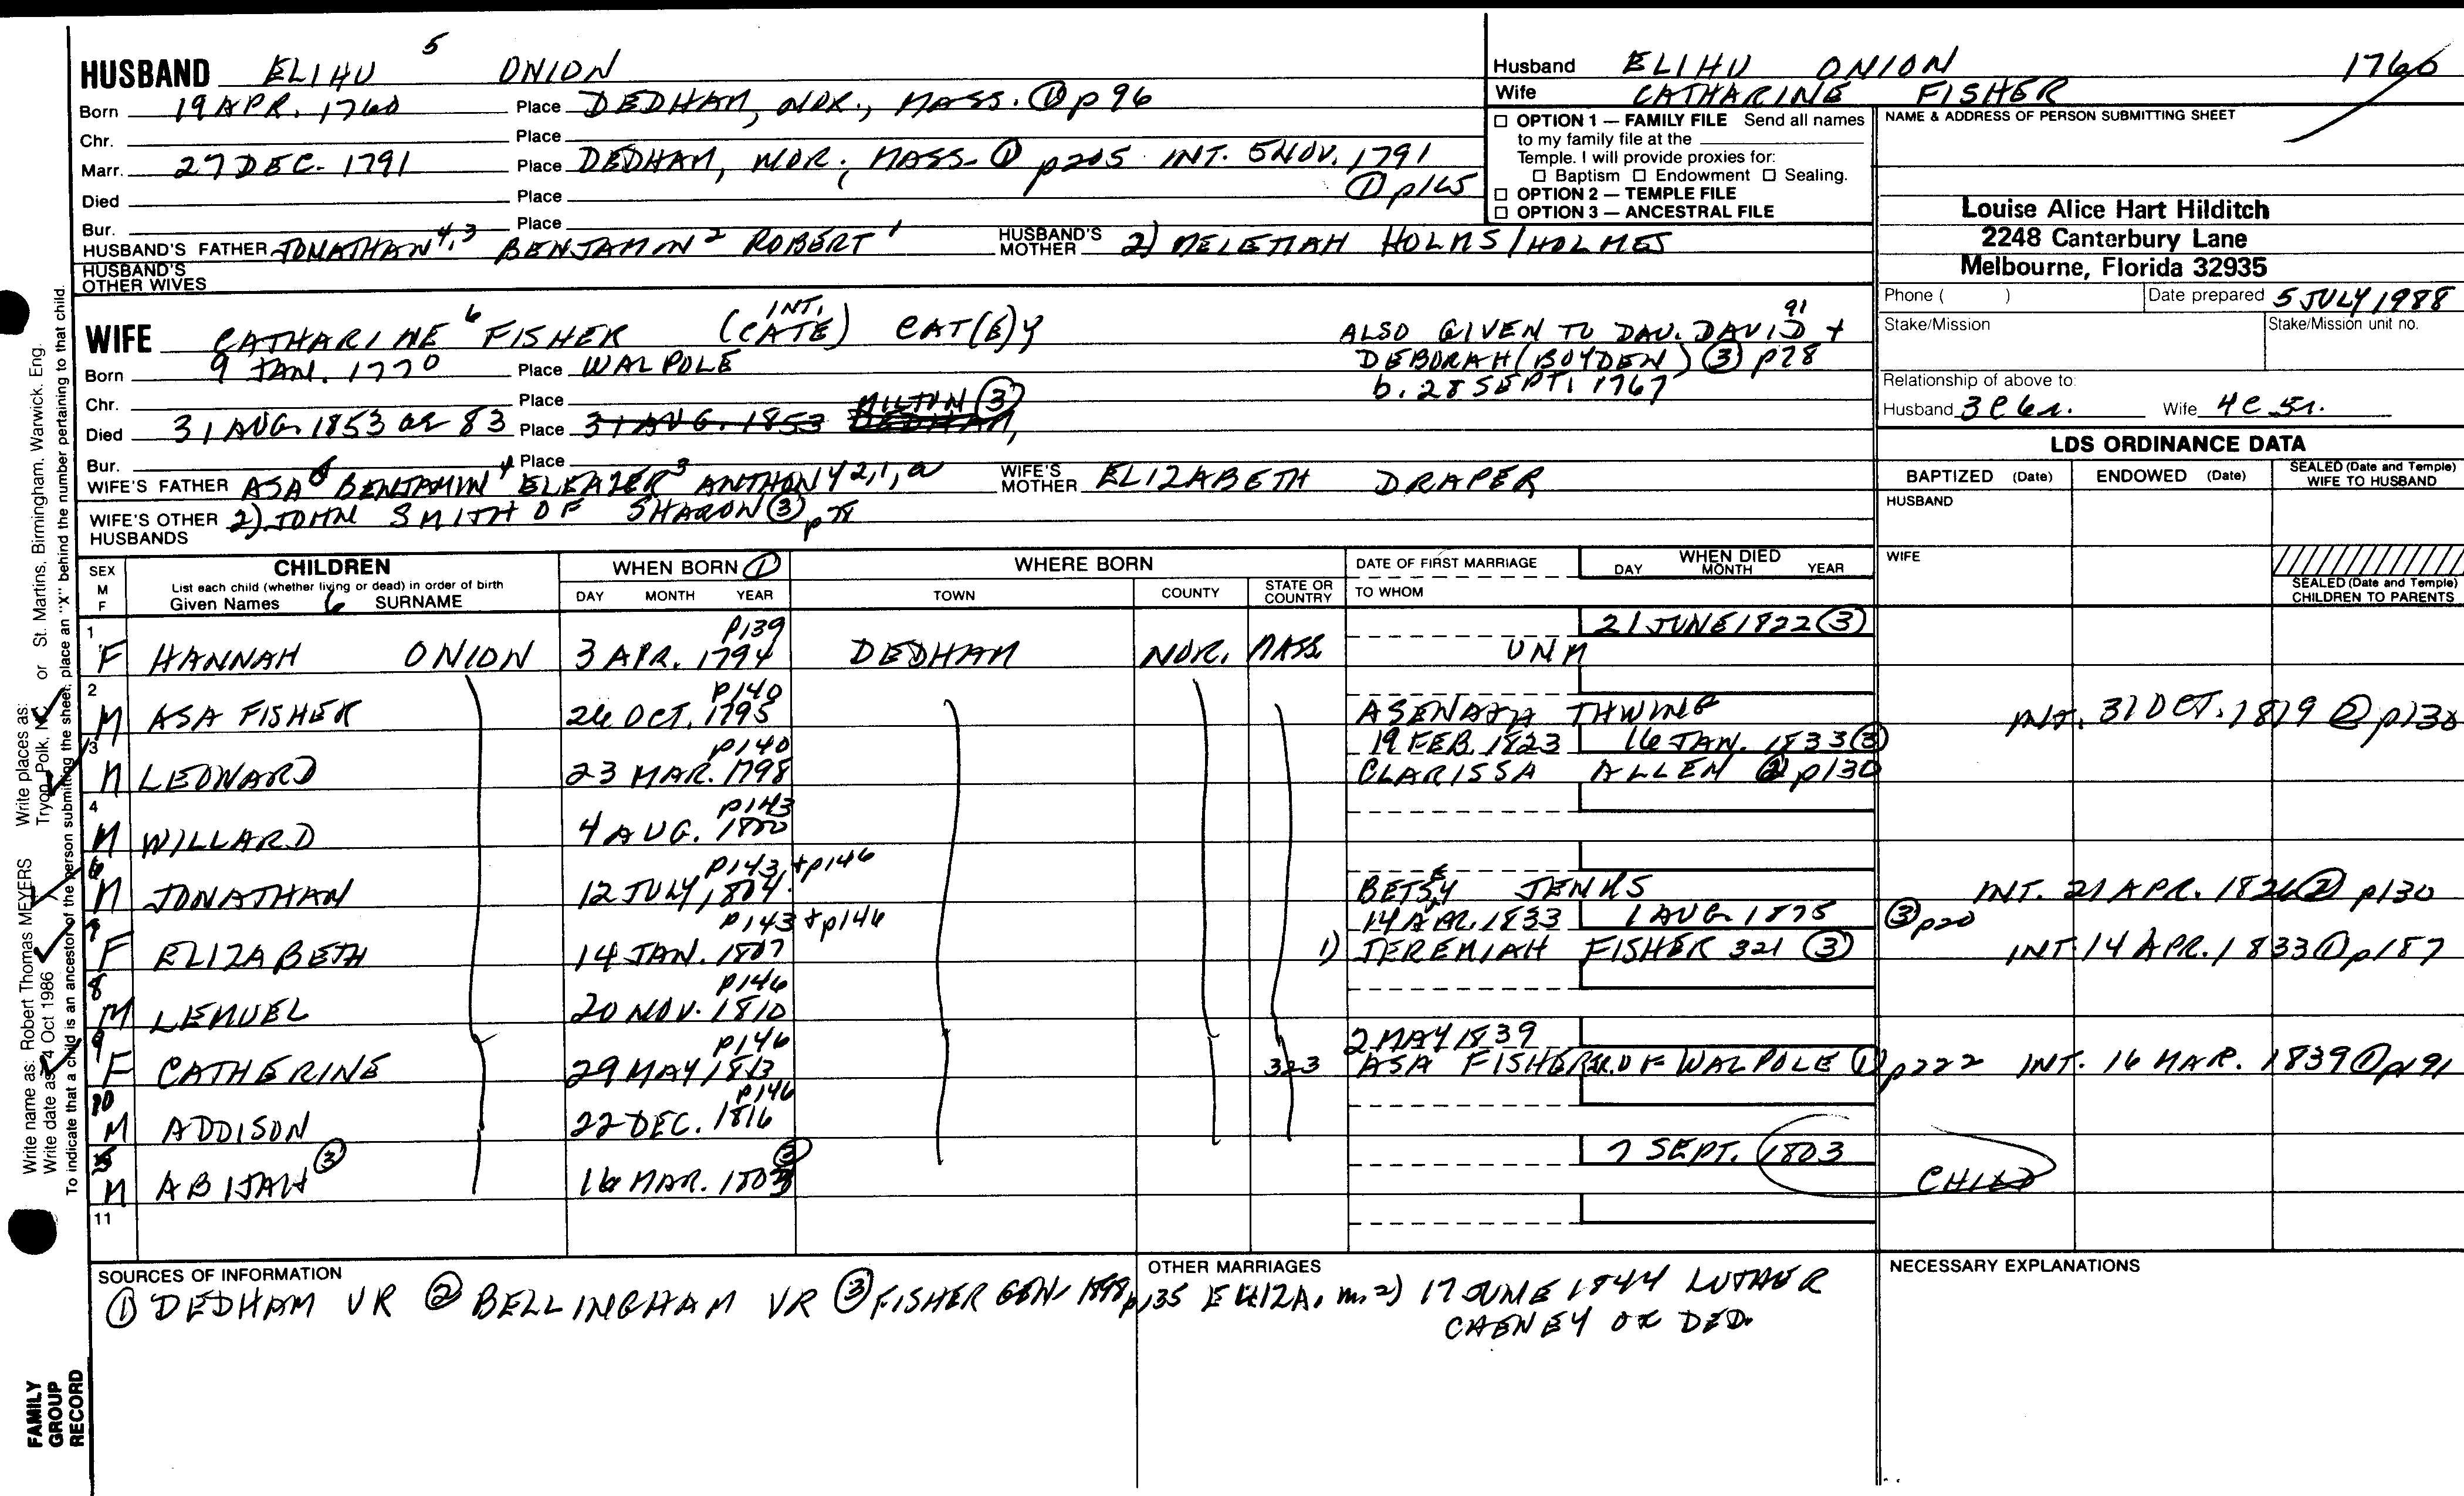 HUSBAND ELIHU 5 ONION
Born 19 APR. 1760 Place DEDHAM, NOR., MASS. ① p 96
Chr. Place
Marr. 27 DEC. 1791 Place DEDHAM, NOR., MASS. ① p205 INT. 5 NOV. 1791
① p165
Died Place
Bur. Place
HUSBAND'S FATHER JONATHAN 4,3 BENJAMIN 2 ROBERT 1 HUSBAND'S MOTHER 2) MELETIAH HOLMS/HOLMES
HUSBAND'S OTHER WIVES
Husband ELIHU ONION 1760
Wife CATHARINE FISHER
□ OPTION 1 — FAMILY FILE Send all names
to my family file at the
Temple. I will provide proxies for:
□ Baptism □ Endowment □ Sealing.
□ OPTION 2 — TEMPLE FILE
□ OPTION 3 — ANCESTRAL FILE
NAME & ADDRESS OF PERSON SUBMITTING SHEET
Louise Alice Hart Hilditch
2248 Canterbury Lane
Melbourne, Florida 32935
Phone ( ) Date prepared 5 JULY 1988
Stake/Mission Stake/Mission unit no.
Relationship of above to:
Husband Wife
WIFE CATHARINE 6 FISHER INT. (CATE) CAT(E)Y
ALSO GIVEN TO DAU. DAVID 91 +
DEBORAH (BOYDEN) ③ p78
b. 28 SEPT. 1767
Born 9 JAN. 1770 Place WALPOLE
Chr. Place
Died 31 AUG. 1853 OR 83 Place 31 AUG. 1853 DEDHAM, MILTON ③
Bur. Place
WIFE'S FATHER ASA BENJAMIN 4 ELEAZER 3 ANTHONY 2,1,a WIFE'S MOTHER ELIZABETH DRAPER
WIFE'S OTHER HUSBANDS 2) JOHN SMITH OF SHARON ③ p78
LDS ORDINANCE DATA
BAPTIZED (Date) ENDOWED (Date) SEALED (Date and Temple) WIFE TO HUSBAND
HUSBAND
WIFE
SEALED (Date and Temple) CHILDREN TO PARENTS
SEX M F
CHILDREN
List each child (whether living or dead) in order of birth
Given Names 6 SURNAME
WHEN BORN ①
DAY MONTH YEAR
WHERE BORN
TOWN COUNTY STATE OR COUNTRY
DATE OF FIRST MARRIAGE
TO WHOM
WHEN DIED
DAY MONTH YEAR
1 p139 21 JUNE 1822 ③
F HANNAH ONION 3 APR. 1794 DEDHAM NOR. MASS. UNM
2 p140
M ASA FISHER 26 OCT. 1795 ASENATH THWING INT. 31 OCT. 1819 ② p130
3 p140 19 FEB. 1823 16 JAN. 1833 ③
M LEONARD 23 MAR. 1798 CLARISSA ALLEN ② p130
4 p143
M WILLARD 4 AUG. 1800
6 p143 + p146
M JONATHAN 12 JULY 1804 BETSEY JENKS INT. 21 APR. 1826 ② p130
7 p143 + p146 14 APR. 1833 1 AUG. 1875 ③ p20
F ELIZABETH 14 JAN. 1807 1) JEREMIAH FISHER 321 ③ INT. 14 APR. 1833 ① p187
8 p146
M LEMUEL 20 NOV. 1810
9 p146 2 MAY 1839
F CATHERINE 29 MAY 1813 323 ASA FISHER JR. OF WALPOLE ① p222 INT. 16 MAR. 1839 ① p191
10 p146
M ADDISON 22 DEC. 1816
5 7 SEPT. 1803
M ABIJAH ③ 16 MAR. 1803 ③ CHILD
11
SOURCES OF INFORMATION
① DEDHAM VR ② BELLINGHAM VR ③ FISHER GEN. 1898 p135
OTHER MARRIAGES
ELIZA. m. 2) 17 JUNE 1844 LUTHER
OF DED.
NECESSARY EXPLANATIONS
Write name as: Robert Thomas MEYERS Write places as: Tryon, Polk, NC or St. Martins, Birmingham, Warwick. Eng.
Write date as: 4 Oct 1986
To indicate that a child is an ancestor of the person submitting the sheet, place an "X" behind the number pertaining to that child.
FAMILY
GROUP
RECORD